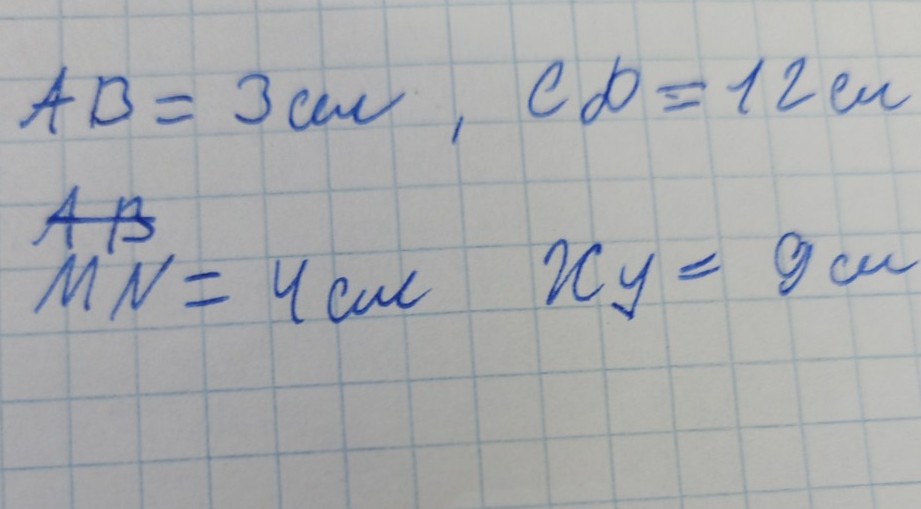 AB = 3 см , CD = 12 см
AB
MN = 4 см XY = 9 см